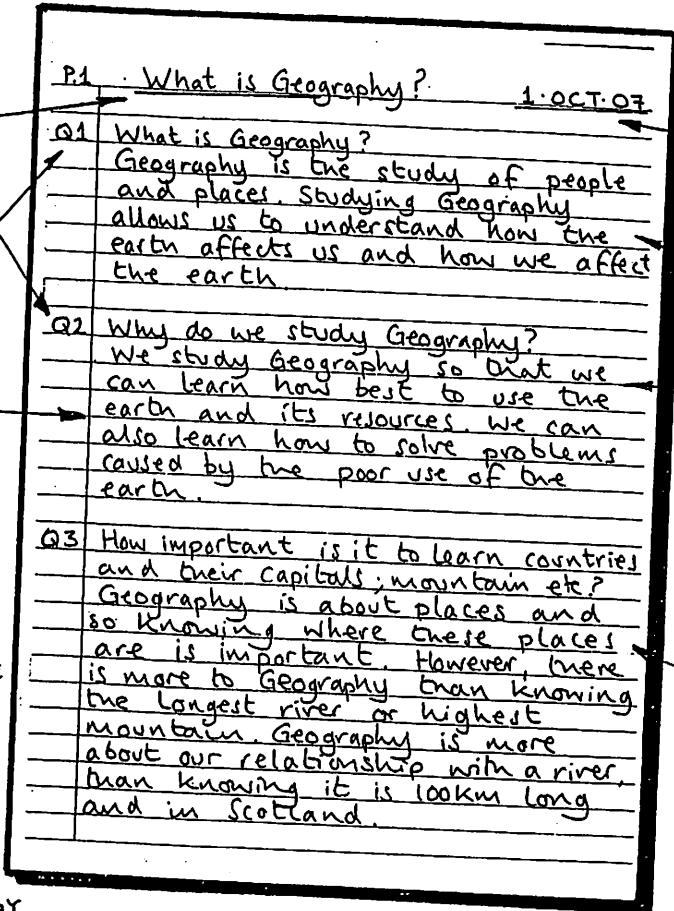 P.1 What is Geography? 1.OCT.07
Q1 What is Geography?
Geography is the study of people
and places. Studying Geography
allows us to understand how the
earth affects us and how we affect
the earth.
Q2 Why do we study Geography?
We study Geography so that we
can learn how best to use the
earth and its resources. We can
also learn how to solve problems
caused by the poor use of the
earth.
Q3 How important is it to learn countries
and their capitals; mountain etc?
Geography is about places and
so knowing where these places
are is important. However, there
is more to Geography than knowing
the longest river or highest
mountain. Geography is more
about our relationship with a river,
than knowing it is 100km long
and in Scotland.